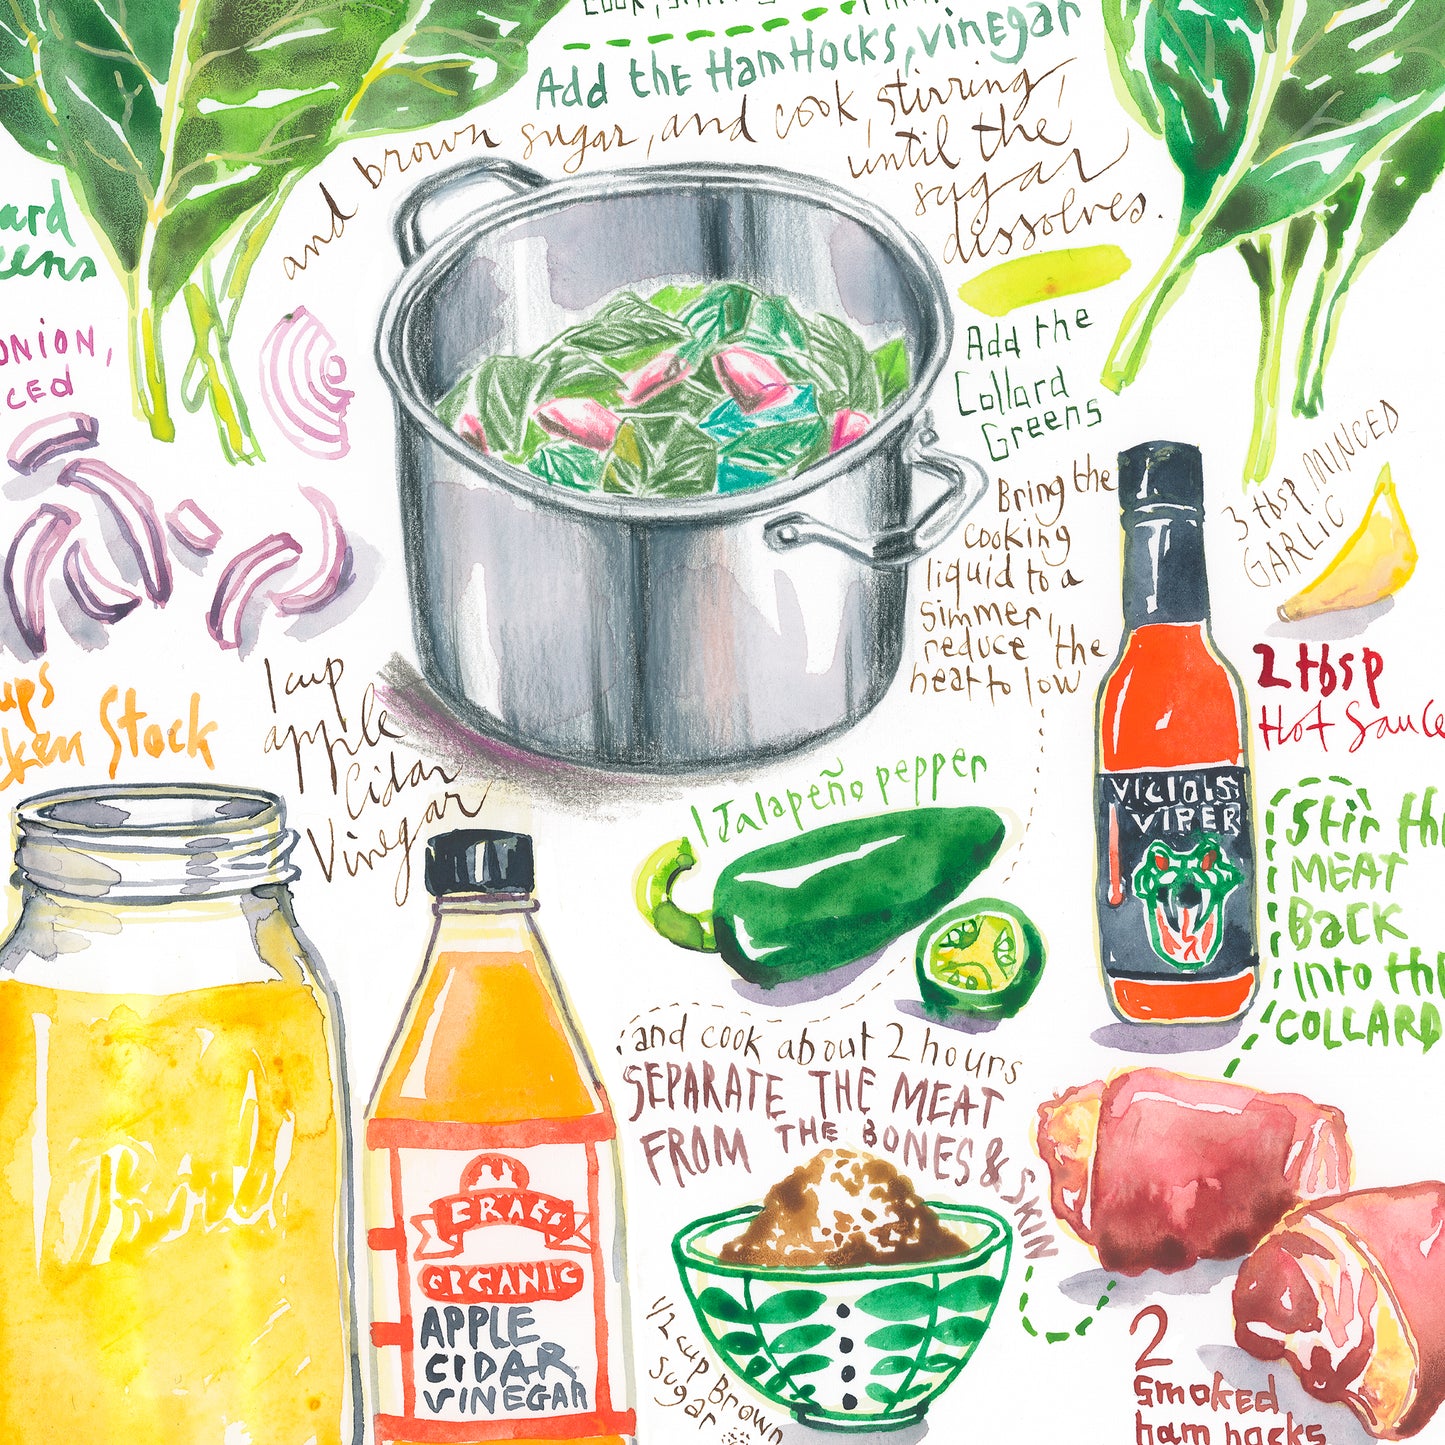 Add the Ham Hocks, vinegar
and brown sugar, and cook, stirring,
until the
sugar
dissolves.
Add the
Collard
Greens
Bring the
cooking
liquid to a
simmer,
reduce the
heat to low
3 tbsp MINCED
GARLIC
ONION,
1 cup
apple
Cidar
Vinegar
Stock
1 Jalapeño pepper
2 tbsp
Hot Sauce
VICIOUS
VIPER
Stir th
MEAT
Back
into th
COLLARD
and cook about 2 hours
SEPARATE THE MEAT
FROM THE BONES & SKIN
BRAGG
ORGANIC
APPLE
CIDAR
VINEGAR
1/2 cup Brown
Sugar
2
smoked
ham hocks